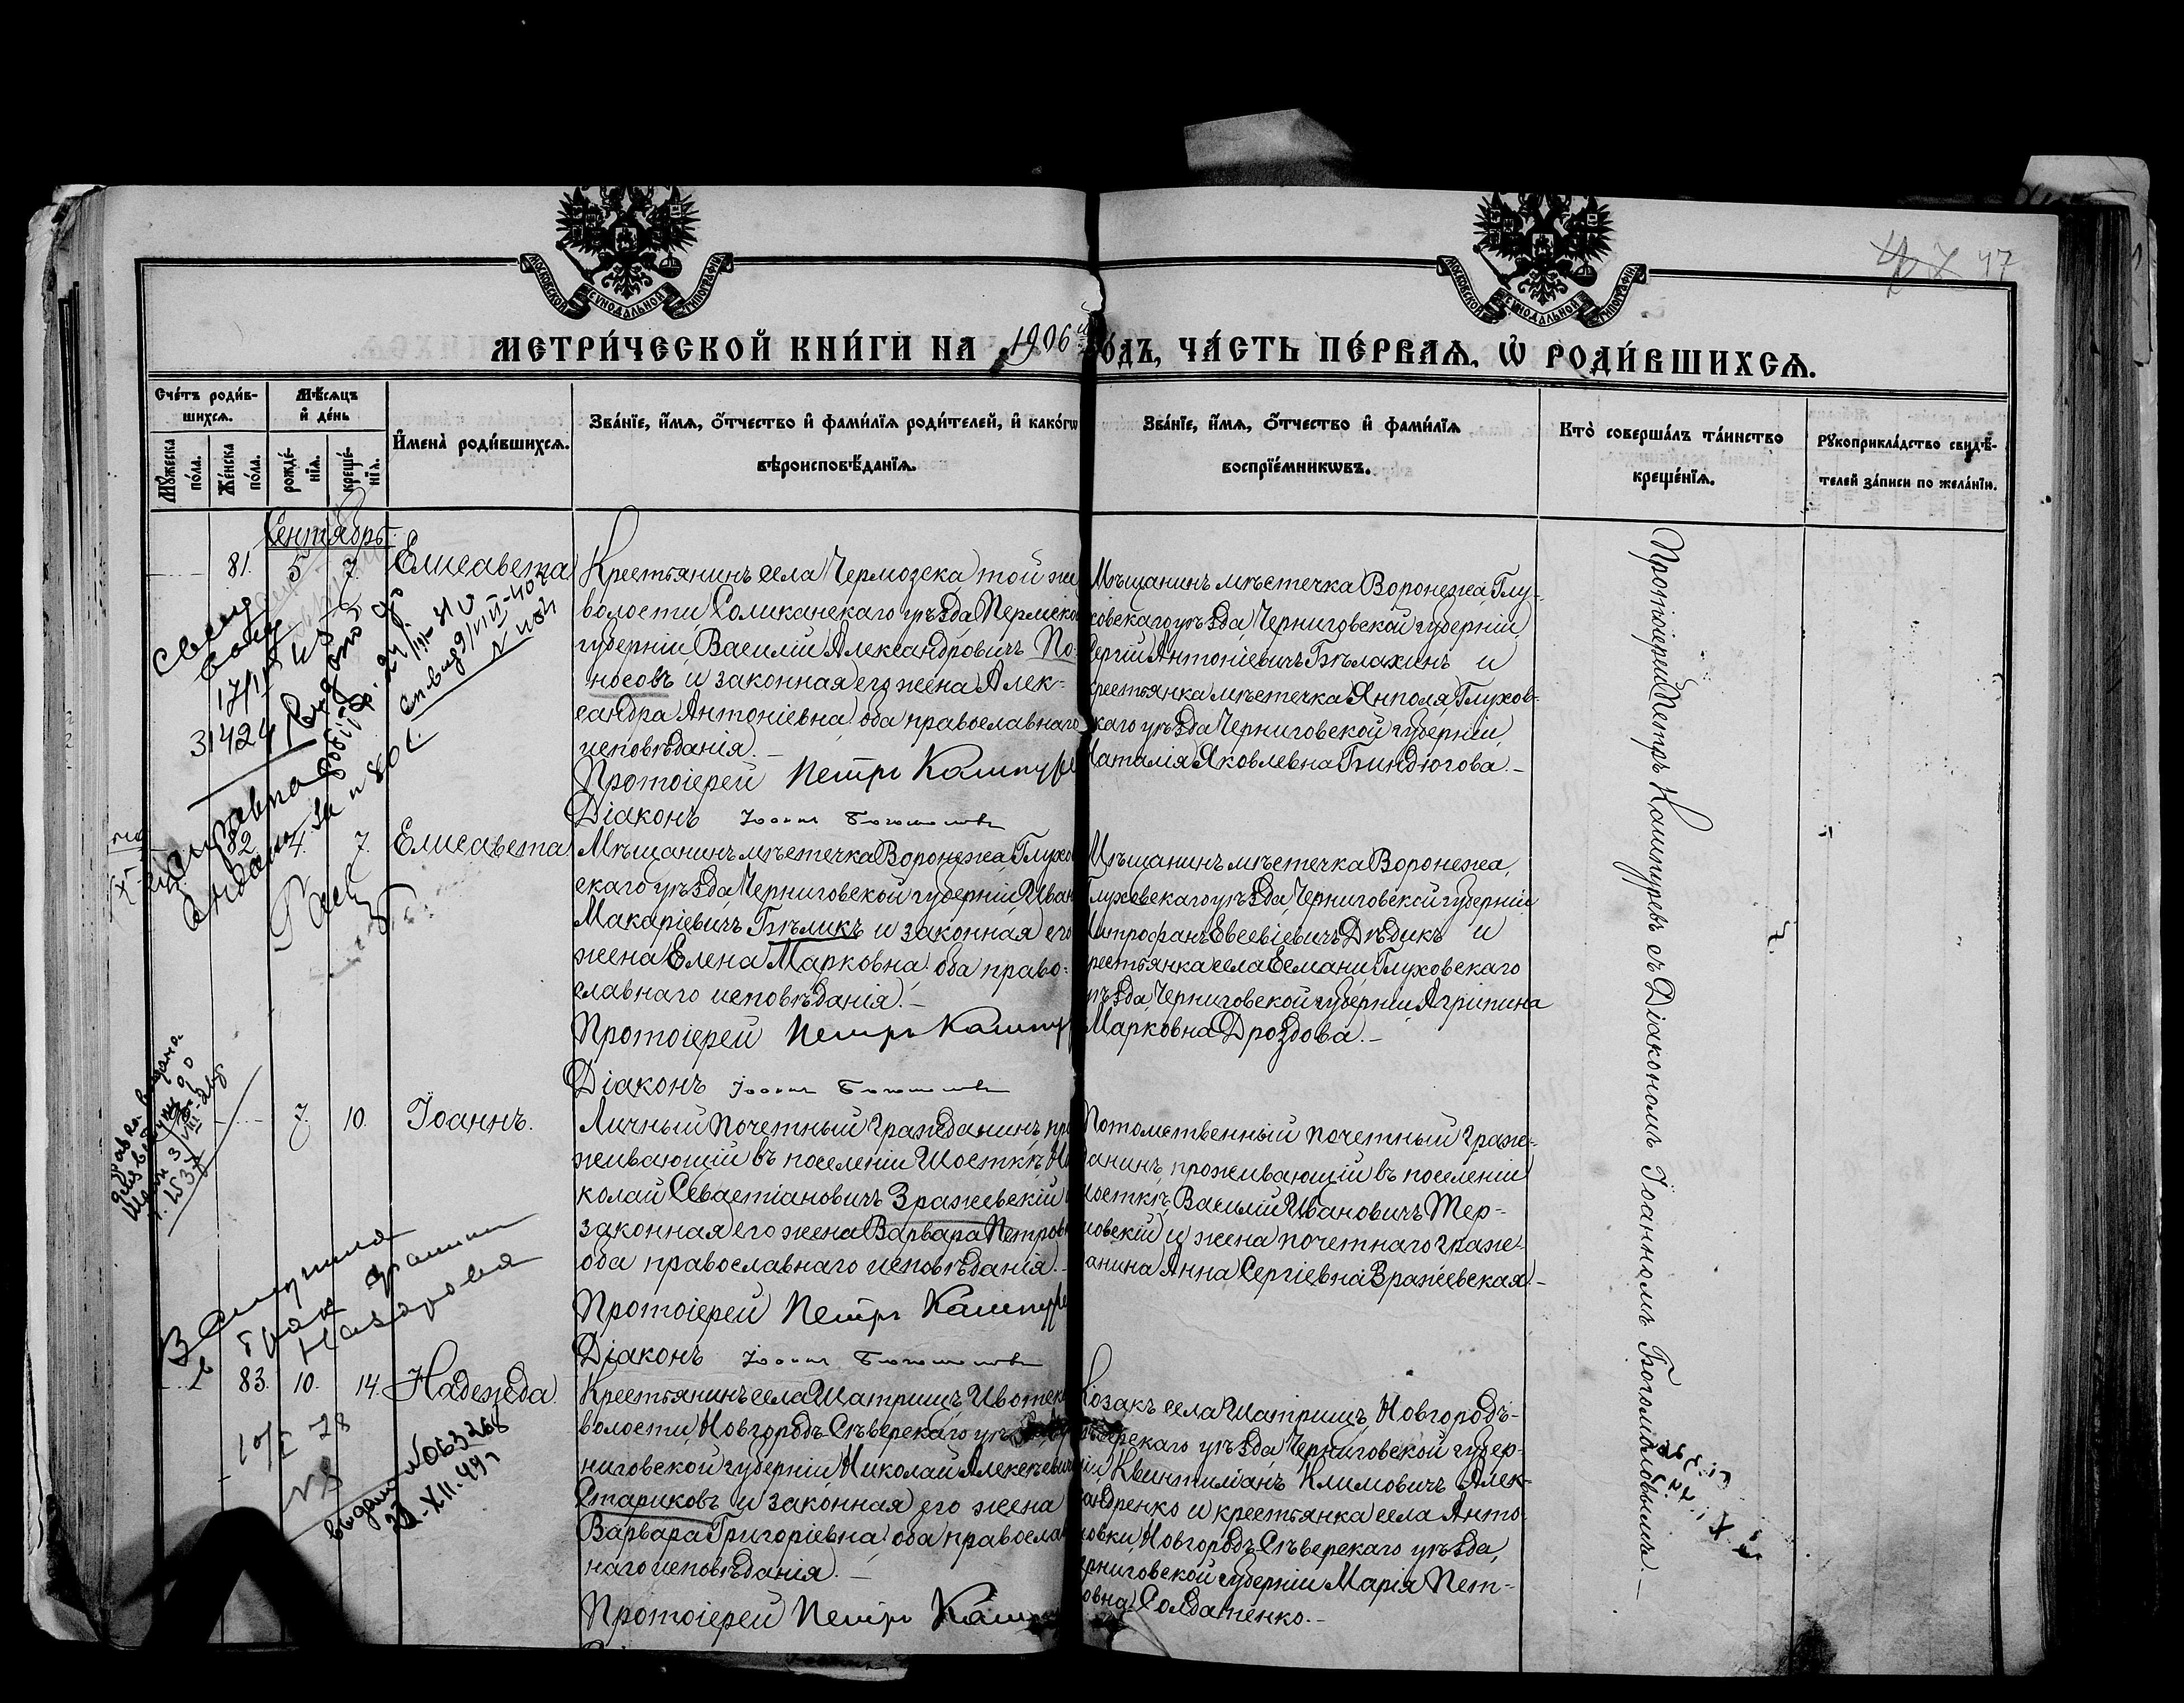 МОСКОВСКОЙ СУНОДАЛЬНОЙ ТИПОГРАФІИ
МОСКОВСКОЙ СУНОДАЛЬНОЙ ТИПОГРАФІИ
47
МЕТРИ́ЧЕСКОЙ КНИ́ГИ НА 1906 й
ОДЪ, ЧА́СТЬ ПЕ́РВАѦ, Ѡ҆ РОДИ́ВШИХСѦ.
Сче́тъ роди́в-
шихсѧ.
Мѣ́сѧцъ
и҆ де́нь
Мꙋ́жеска
по́ла.
Же́нска
по́ла.
рожде́-
нїѧ.
креще́-
нїѧ.
И҆мена̀ роди́вшихсѧ.
Зва́нїе, и҆́мѧ, ѻ҆́тчество и҆ фами́лїѧ роди́телей, и҆ како́гѡ
вѣроисповѣ́данїѧ.
Зва́нїе, и҆́мѧ, ѻ҆́тчество и҆ фами́лїѧ
воспрїе́мникѡвъ.
Кто̀ соверша́лъ та́инство
креще́нїѧ.
Рꙋкоприкла́дство свидѣ́-
телей за́писи по жела́нїю.
Сентябрь
81. 5 7. Елисавета
Крестьянинъ села Чермозска той же
волости Соликанскаго уѣзда Пермско
губерніи Василій Александровичъ По-
носовъ и законная его жена Алек-
сандра Антоніевна, оба православнаго
исповѣданія.–
Протоіерей Петръ Кашпуре
Діаконъ Іоаннъ Богомолов
Мѣщанинъ мѣстечка Воронежа, Глу-
ховскаго уѣзда, Черниговской губерніи,
Сергій Антоніевичъ Бѣлахинъ и
крестьянка мѣстечка Янполя Глухов-
скаго уѣзда Черниговской губерніи,
Наталія Яковлевна Биндюгова.–
82 4. 7. Елисавета
Мѣщанинъ мѣстечка Воронежа, Глухов
скаго уѣзда, Черниговской губерніи, Иван
Макаріевичъ Бѣликъ и законная его
жена Елена Марковна, оба право-
славнаго исповѣданія.–
Протоіерей Петръ Кашпур
Діаконъ Іоаннъ Богомолов
Мѣщанинъ мѣстечка Воронежа,
Глуховскаго уѣзда, Черниговской губерніи
Митрофанъ Евсевіевичъ Дѣдикъ и
рестьянка села Есмани Глуховскаго
уѣзда Черниговской губерніи Агрипина
Марковна Дроздова.–
7 10. Іоаннъ.
Личный почетный гражданинъ, про
живающій въ поселеніи Шосткѣ, Ни
колай Севастіановичъ Зражевскій и
законная его жена Варвара Петровн
оба православнаго исповѣданія.–
Протоіерей Петръ Кашпуре
Діаконъ Іоаннъ Богомолов
Потомственный почетный граж-
данинъ, проживающій въ поселеніи
Шосткѣ, Василій Ивановичъ Тер-
новскій и жена почетнаго граж-
данина Анна Сергіевна Зражевская.–
83. 10. 14. Надежда.
Крестьянинъ села Шатрищъ, Ивотск
волости, Новгородъ-Сѣверскаго уѣз
ниговской губерніи Николай Алексѣевич
Стариковъ и законная его жена
Варвара Григоріевна, оба православ
наго исповѣданія.–
Протоіерей Петръ Кашп
Козакъ села Шатрищъ, Новгородъ-
Сѣверскаго уѣзда, Черниговской губер-
ніи, Квинтиліанъ Климовичъ Алек-
сандренко и крестьянка села Анто-
новки, Новгородъ-Сѣверскаго уѣзда,
ерниговской губерніи Марія Пет-
ровна Солдатенко.–
Протоіерей Петръ Кашпуревъ съ Діакономъ Іоанномъ Богомоловымъ.–
31424
Вступила
в брак
Назарова
10/I 78
выдано N 063268
21.XII.49г